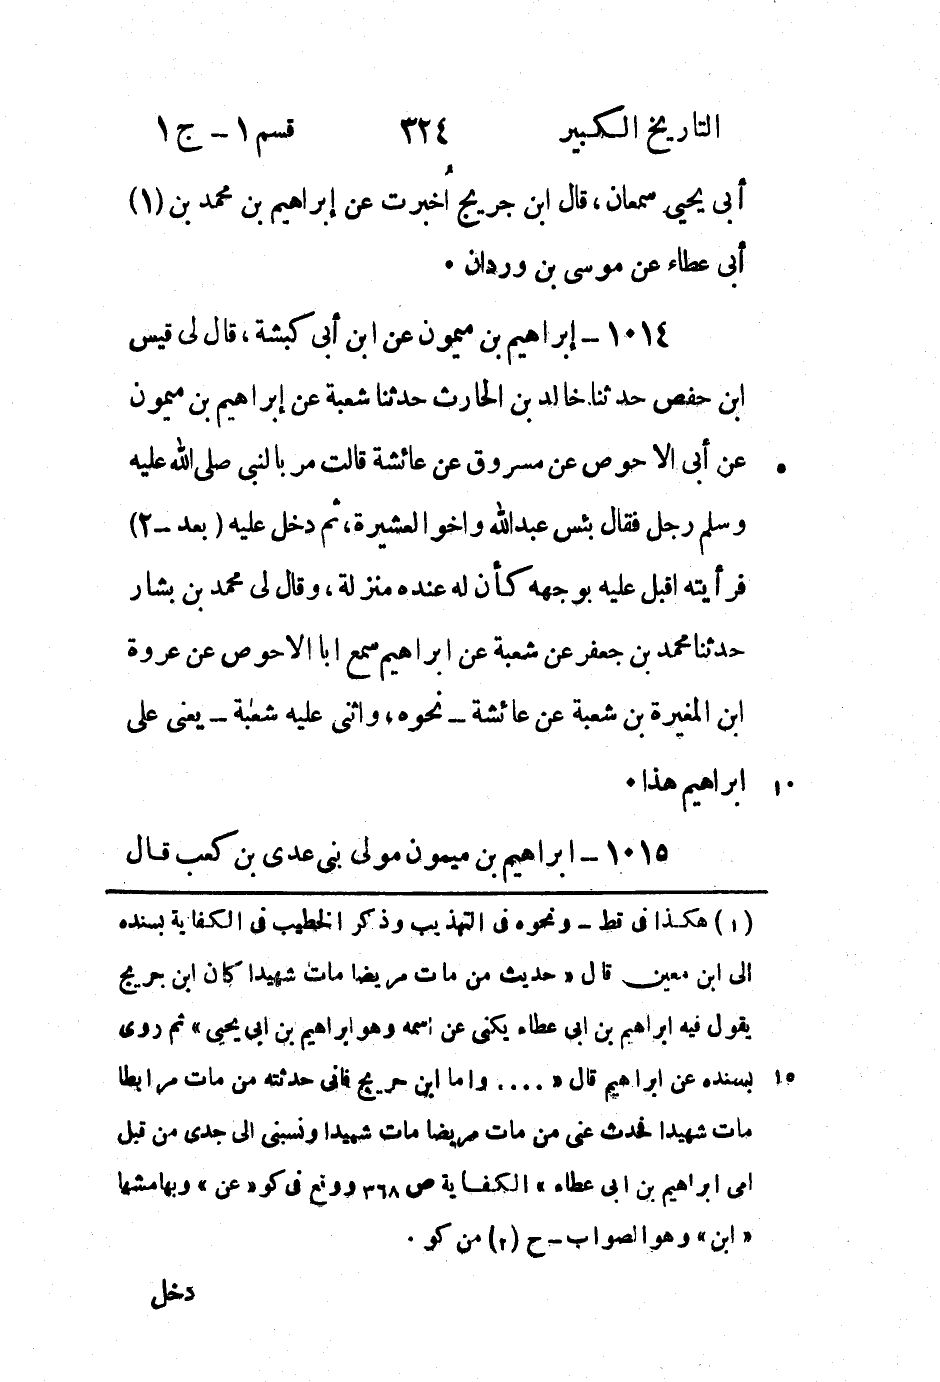 التاريخ الكبير ٣٢٤ قسم ١ - ج ١
أبى يحيى سمعان، قال ابن جريج أُخبرت عن إبراهيم بن محمد بن (١)
أبى عطاء عن موسى بن وردان ٠
١٠١٤ - إبراهيم بن ميمون عن ابن أبى كبشة، قال لى قيس
ابن حفص حدثنا خالد بن الحارث حدثنا شعبة عن إبراهيم بن ميمون
عن أبى الاحوص عن مسروق عن عائشة قالت مر بالنبى صلى الله عليه ٥
وسلم رجل فقال بئس عبدالله واخو العشيرة، ثم دخل عليه (بعد - ٢)
فرأيته اقبل عليه بوجهه كأن له عنده منزلة، وقال لى محمد بن بشار
حدثنا محمد بن جعفر عن شعبة عن ابراهيم سمع ابا الاحوص عن عروة
ابن المغيرة بن شعبة عن عائشة - نحوه، واثنى عليه شعبة - يعنى على
ابراهيم هذا ٠ ١٠
١٠١٥ - ابراهيم بن ميمون مولى بنى عدى بن كعب قال
(١) هكذا فى قط - ونحوه فى التهذيب وذكر الخطيب فى الكفاية بسنده
الى ابن معين قال « حديث من مات مريضا مات شهيدا كان ابن جريج
يقول فيه ابراهيم بن ابى عطاء يكنى عن اسمه وهو ابراهيم بن ابى يحيى » ثم روى
بسنده عن ابراهيم قال « .... واما ابن جريج فانى حدثته من مات مرابطا ١٥
مات شهيدا فحدث عنى من مات مريضا مات شهيدا ونسبنى الى جدى من قبل
امى ابراهيم بن ابى عطاء » الكفاية ص ٣٦٨ ووقع فى كو « عن » وبهامشها
« ابن » وهو الصواب - ح (٢) من كو ٠
دخل